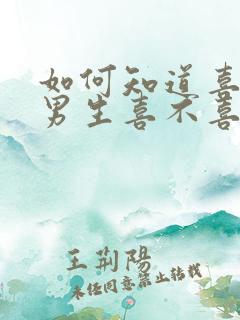 如何知道喜
男生喜不喜
王荊陽
未经同意禁止转载